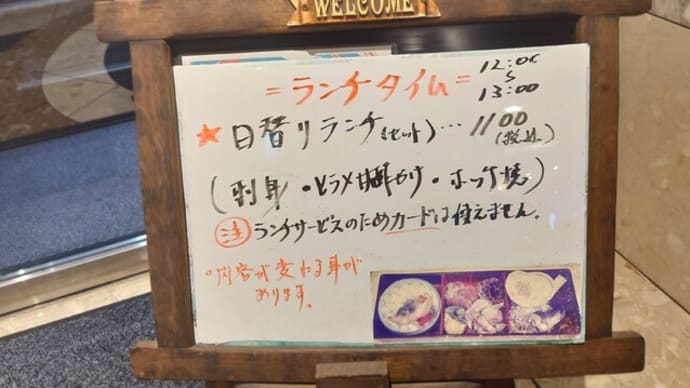 WELCOME
=ランチタイム= 12:00
〜
13:00
★ 日替りランチ(セット)…1100
(税込)
(刺身・ヒラメ甘酢やけ・ホッケ焼)
注 ランチサービスのためカードは使えません。
○内容が変わる事が
あります。